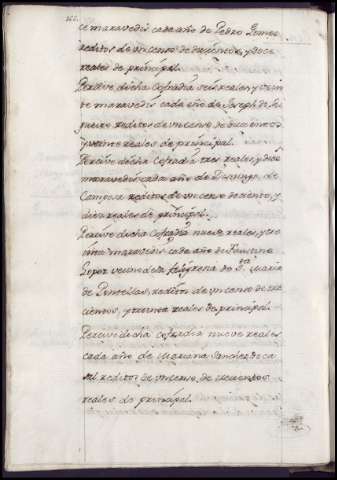 ce maravedis cada año de Pedro Gomez
reditos de un censo de ducientos, y doce
reales de prinzipal.
Percive dicha Cofradia seis reales, y vein
te maravedis cada año de Joseph de Si
queiro reditos de un censo de ducientos
y veinte reales de principal.
Percive dicha Cofradia tres reales, y diez
maravedis cada año de Domingo de
Campos reditos de un censo de ciento, y
diez reales de principal.
Percive dicha Cofradia nueve reales, y tre
inta maravedis cada año de Faustino
Lopez vecino de la feligresia de Sta. Maria
de Pontellas, reditos de un censo de tre
cientos, y treinta reales de principal.
Percive dicha Cofradia nueve reales
cada año de Mariana Sanchez de ca
reditos de un censo de trecientos
reales de principal.